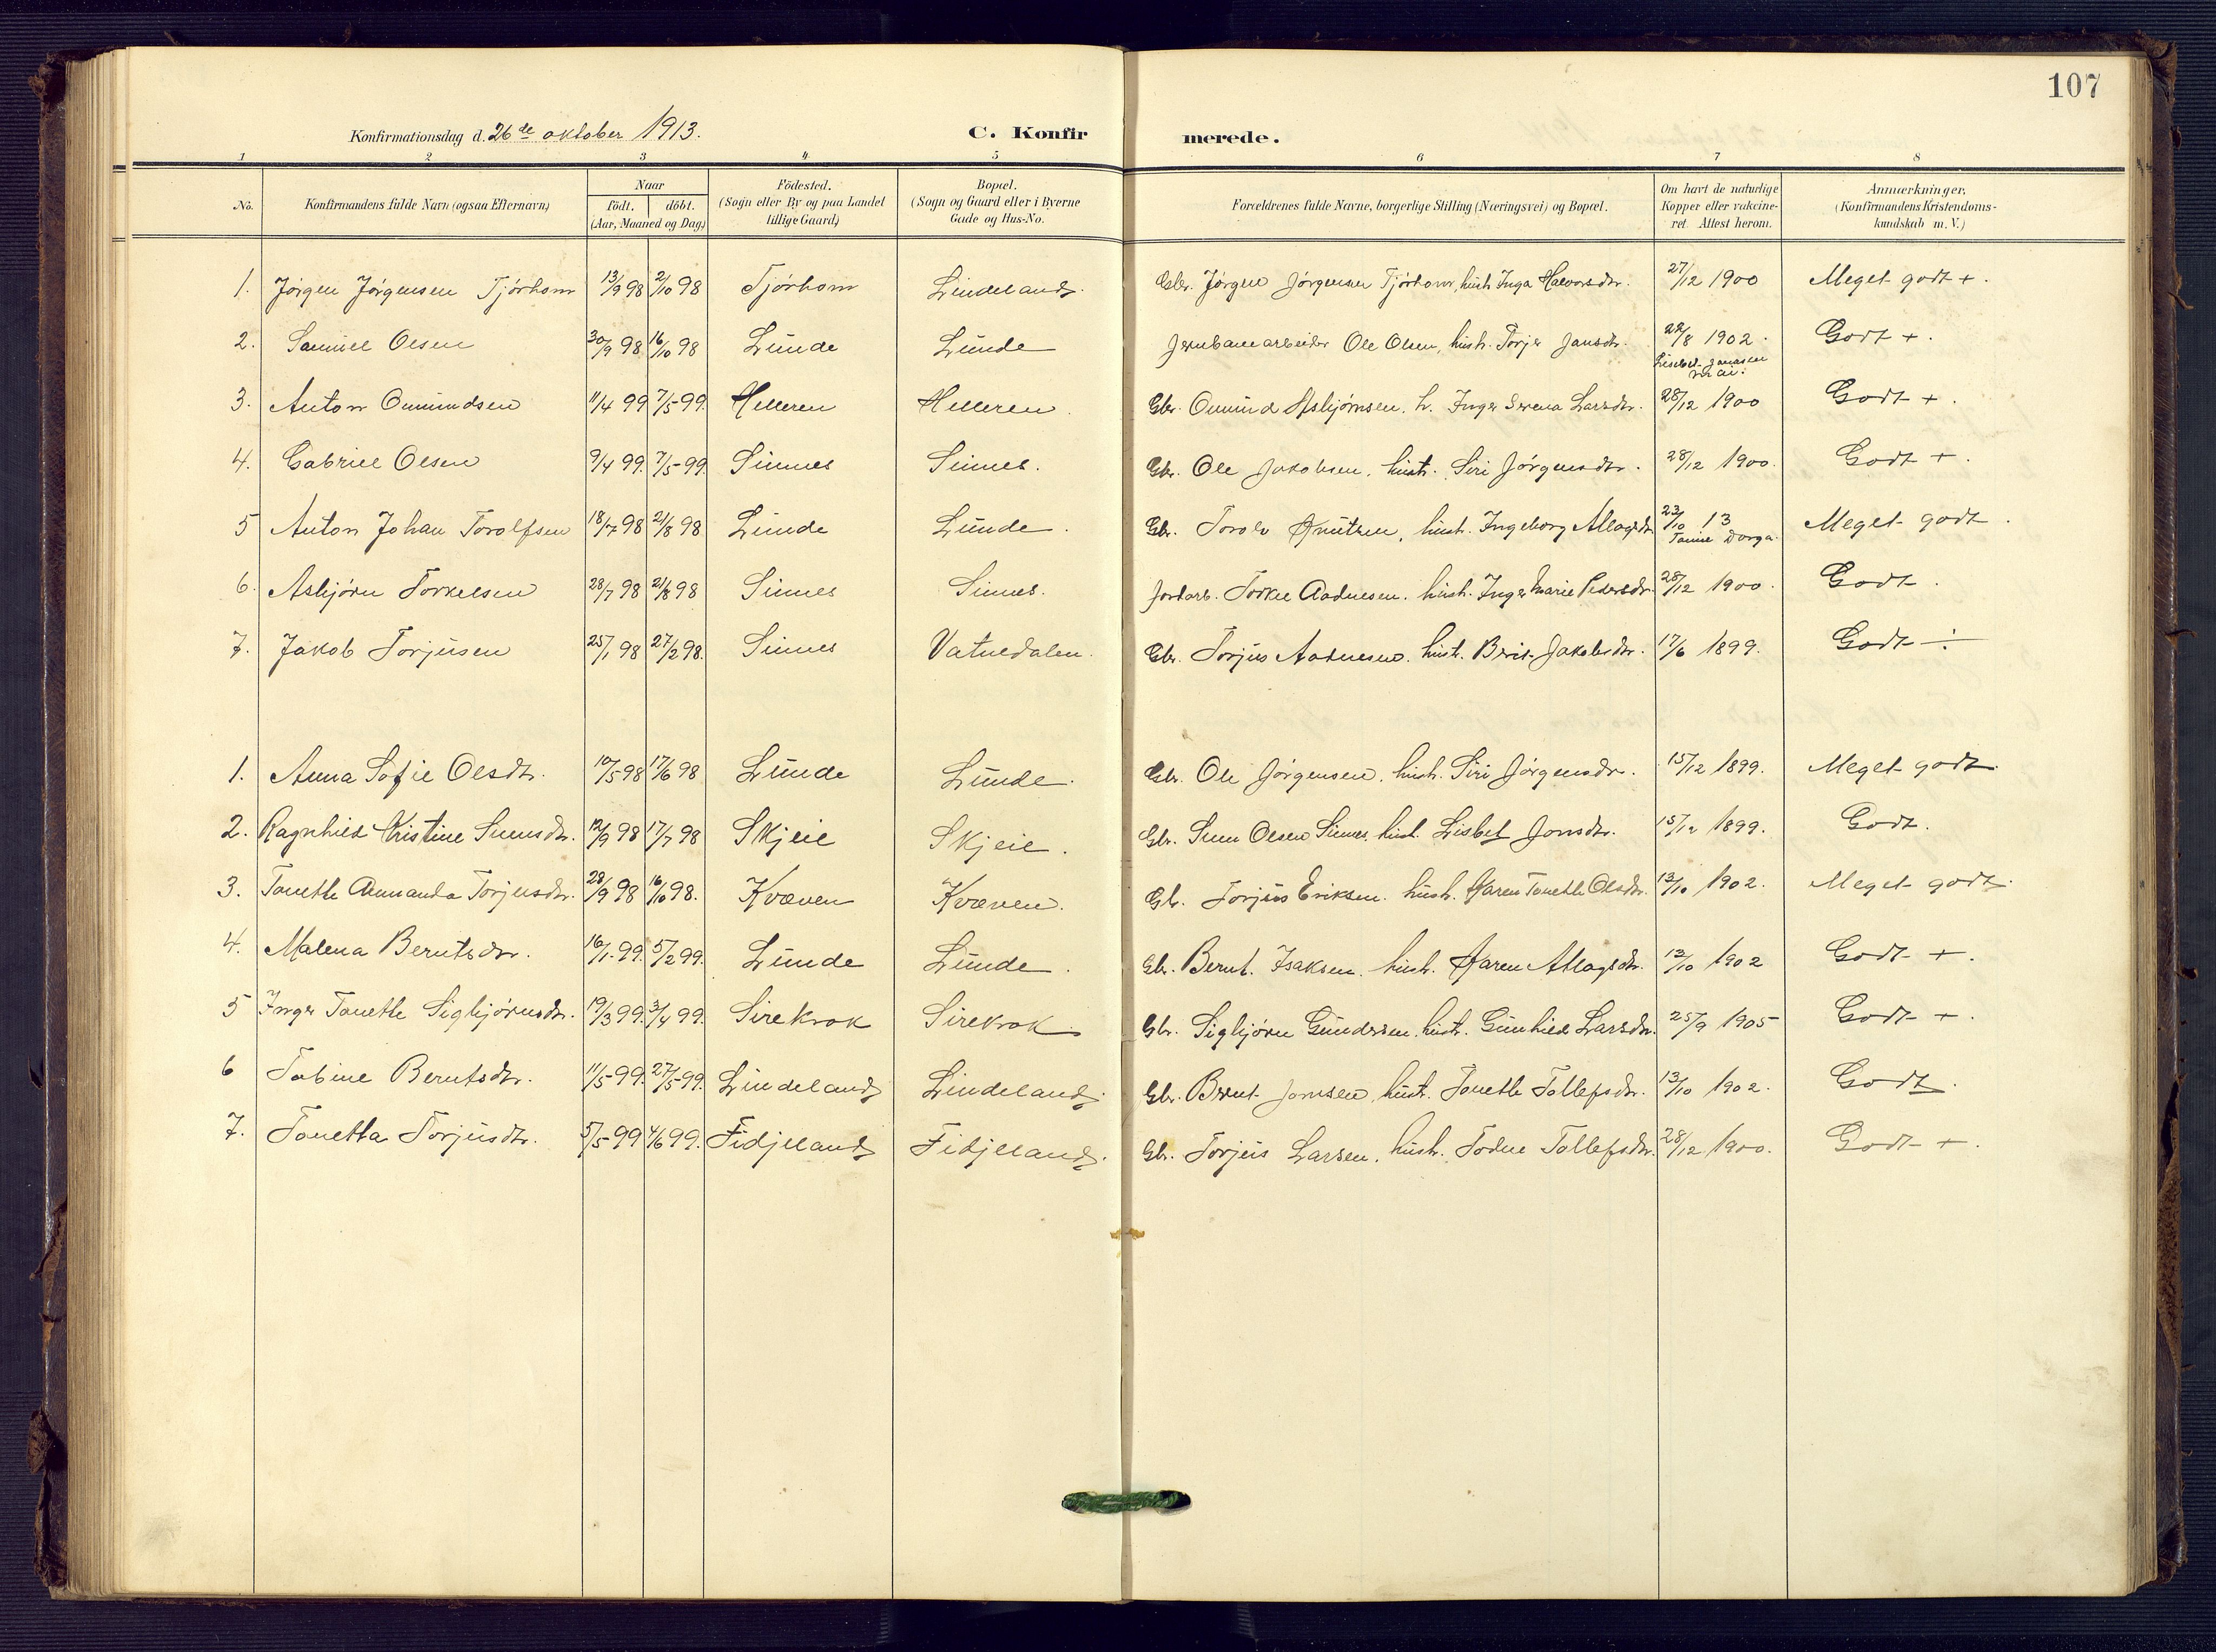 107
Konfirmationsdag d. 26de oktober 1913. C. Konfir merede.
1 2 3 4 5 6 7 8
No. Konfirmandens fulde Navn (ogsaa Efternavn) Naar födt. döbt. (Aar, Maaned og Dag) Födested. (Sogn eller By og paa Landet tillige Gaard) Bopæl. (Sogn og Gaard eller i Byerne Gade og Hus-No. Forældrenes fulde Navne, borgerlige Stilling (Næringsvei) og Bopæl. Om havt de naturlige Kopper eller vakcineret. Attest herom. Anmærkninger. (Konfirmandens Kristendomskundskab m. V.)
1. Jørgen Jørgensen Tjørhom 13/9 98 2/10 98 Tjørhom Lindeland. Gbr. Jørgen Jørgensen Tjørhom, hust. Inga Halvorsdtr. 27/12 1900 Meget godt +.
2. Samuel Olsen 30/9 98 16/10 98 Lunde Lunde Jernbanearbeider Ole Olsen, hust. Torjer Jansdtr. 22/8 1902.
Godt +.
3. Anton Omundsen 11/4 99 7/5-99. Helleren Helleren. Gbr. Omund Asbjørnsen. h. Inger Serena Larsdtr. 28/12 1900 Godt +.
4. Gabriel Olsen 9/4 99. 7/5-99. Sinnes Sinnes. Gbr. Ole Jakobsen, hust. Siri Jørgensdtr. 28/12 1900. Godt +.
5 Anton Johan Torolfsen 18/7 98 21/8 98 Lunde Lunde. Gbr. Torolv Knutsen, hust. Ingeborg Atlagsdtr. 23/10 13 Meget godt.
6. Asbjørn Torkelsen 28/7 98 21/8 98 Sinnes Sinnes. Jordarb. Torkel Aadnesen. hust. Inger Marie Pedersdtr. 28/12 1900. Godt.
7. Jakob Torjusen 25/1 98 27/2 98. Sinnes Vatnedalen. Gbr. Torjus Aadnesen. hust. Brit Jakobsdtr. 17/6 1899. Godt ÷
1. Anna Sofie Olsdtr. 10/5 98 17/6 98 Lunde Lunde. Gbr. Ole Jørgensen. hust. Siri Jørgensdtr. 15/12 1899. Meget godt.
2. Ragnhild Kristine Sunsdtr. 12/9 98 17/7 98 Skjeie Skjeie. Gbr. Sven Olsen Sinnes, hust. Lisbet Jonsdtr. 15/12 1899. Godt.
3. Tonette Annanda Torjusdtr. 28/9 98 16/10 98. Kvæven Kvæven. Gbr. Torjus Eriksen. hust. Karen Tonette Olsdtr. 13/10 1902. Meget godt.
4. Malena Berntsdtr. 16/1-99. 5/2 99. Lunde Lunde. Gbr. Bernt Isaksen. hust. Karen Atlagsdtr. 13/10 1902 Godt +.
5 Inger Tonette Sigbjørnsdtr. 19/3 99. 3/4 99. Sirekrok Sirekrok Gbr. Sigbjørn Gundersen, hust. Gunhild Larsdtr. 25/9 1905 Godt +.
6 Tobine Berntsdtr. 11/5-99. 27/5-99. Lindeland Lindeland. Gbr. Bernt Jonsen, hust. Tonette Tollefsdtr. 13/10 1902. Godt.
7. Tonetta Torjusdtr. 5/5-99 4/6 99. Fidjeland Fidjeland. Gbr. Torjus Larsen, hust. Todne Tollefsdtr. 28/12 1900. Godt +.